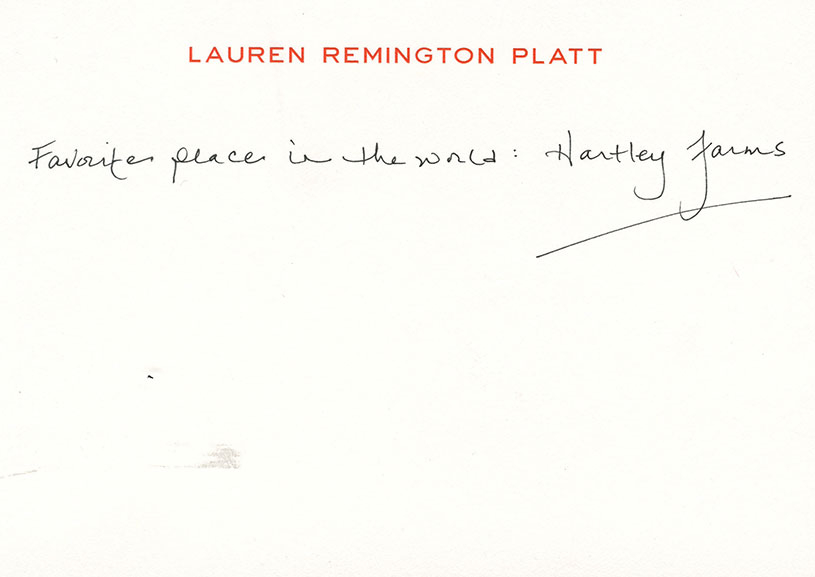 LAUREN REMINGTON PLATT
Favorite place in the world: Hartley Farms